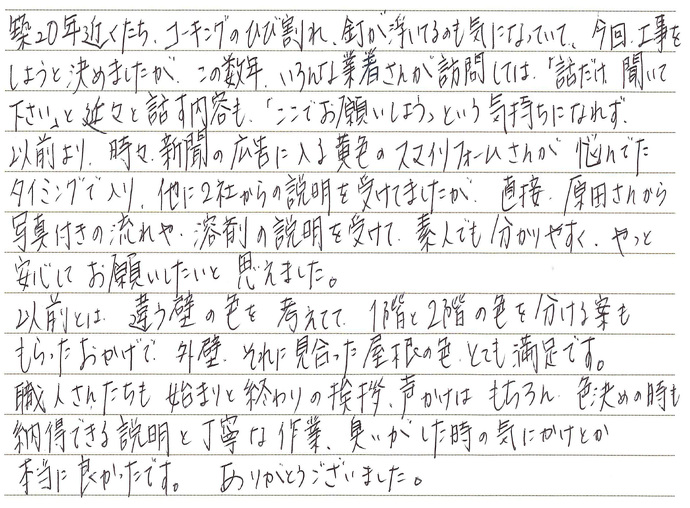 築20年近くたち、コーキングのひび割れ、釘が浮いてるのも気になっていて、今回、工事を
しようと決めましたが、この数年、いろんな業者さんが訪問しては、「話だけ聞いて
下さい」と延々と話す内容も、「ここでお願いしよう」という気持ちになれず、
以前より、時々、新聞の広告に入る黄色のスマイリフォームさんが悩んでた
タイミングで入り、他に2社からの説明を受けてましたが、直接、原田さんから
写真付きの流れや、溶剤の説明を受けて、素人でも分かりやすく、やっと
安心してお願いしたいと思えました。
以前とは、違う壁の色を考えてて、1階と2階の色を分ける案も
もらったおかげで、外壁、それに見合った屋根の色、とても満足です。
職人さんたちも始まりと終わりの挨拶、声かけはもちろん、色決めの時も
納得できる説明と丁寧な作業、臭いがした時の気にかけとか
本当に良かったです。 ありがとうございました。